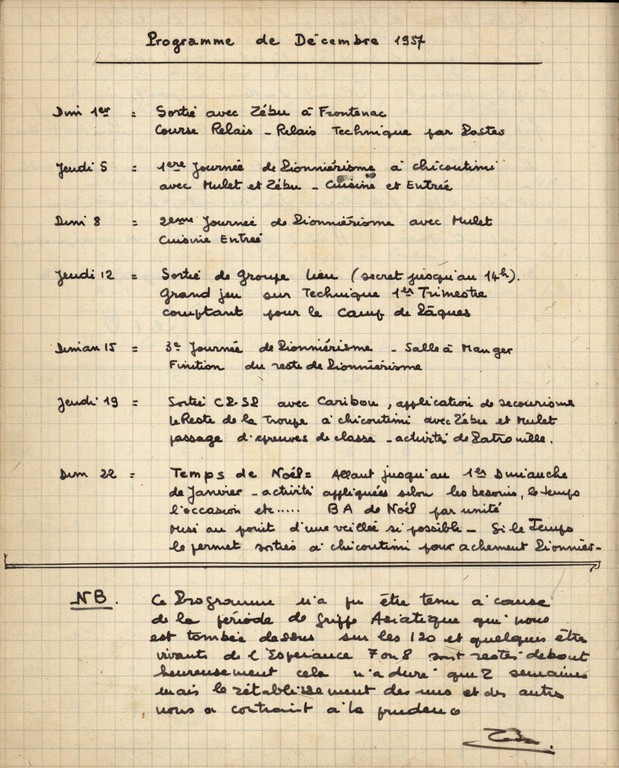 Programme de Décembre 1957
Dim 1er = Sortie avec Zébu à Frontenac
Course Relais - Relais Technique par Postes
Jeudi 5 = 1ere Journée de Pionniérisme à chicoutimi
avec Mulet et Zébu - Cuisine et Entrée
Dim 8 = 2eme Journée de Pionniérisme avec Mulet
Cuisine Entrée
Jeudi 12 = Sortie de Groupe lieu (secret jusqu'au 14h).
Grand jeu sur Technique 1er Trimestre
comptant pour le Camp de Pâques
Diman 15 = 3e Journée de Pionniérisme - Salle à Manger
Finition du reste de Pionniérisme
Jeudi 19 = Sortie CP-SP avec Caribou, application de secourisme
le Reste de la Troupe à chicoutimi avec Zébu et Mulet
passage d'épreuves de classe - activité de Patrouille.
Dim 22 = Temps de Noël = Allant jusqu'au 1er Dimanche
de Janvier - activité appliquées selon les besoins, le temps
l'occasion etc..... BA de Noël par unité
ainsi au point d'une veillée si possible - Si le Temps
le permet sorties à chicoutimi pour achement Pionnier -
NB. Ce Programme n'a pu être tenu à cause
de la période de grippe Asiatique qui nous
est tombée dessus sur les 120 et quelques être
vivants de l'Espérance 7 ou 8 sont restés debout
heureusement cela n'a duré que 2 semaines
mais le rétablissement des uns et des autres
nous a contraint à la prudence